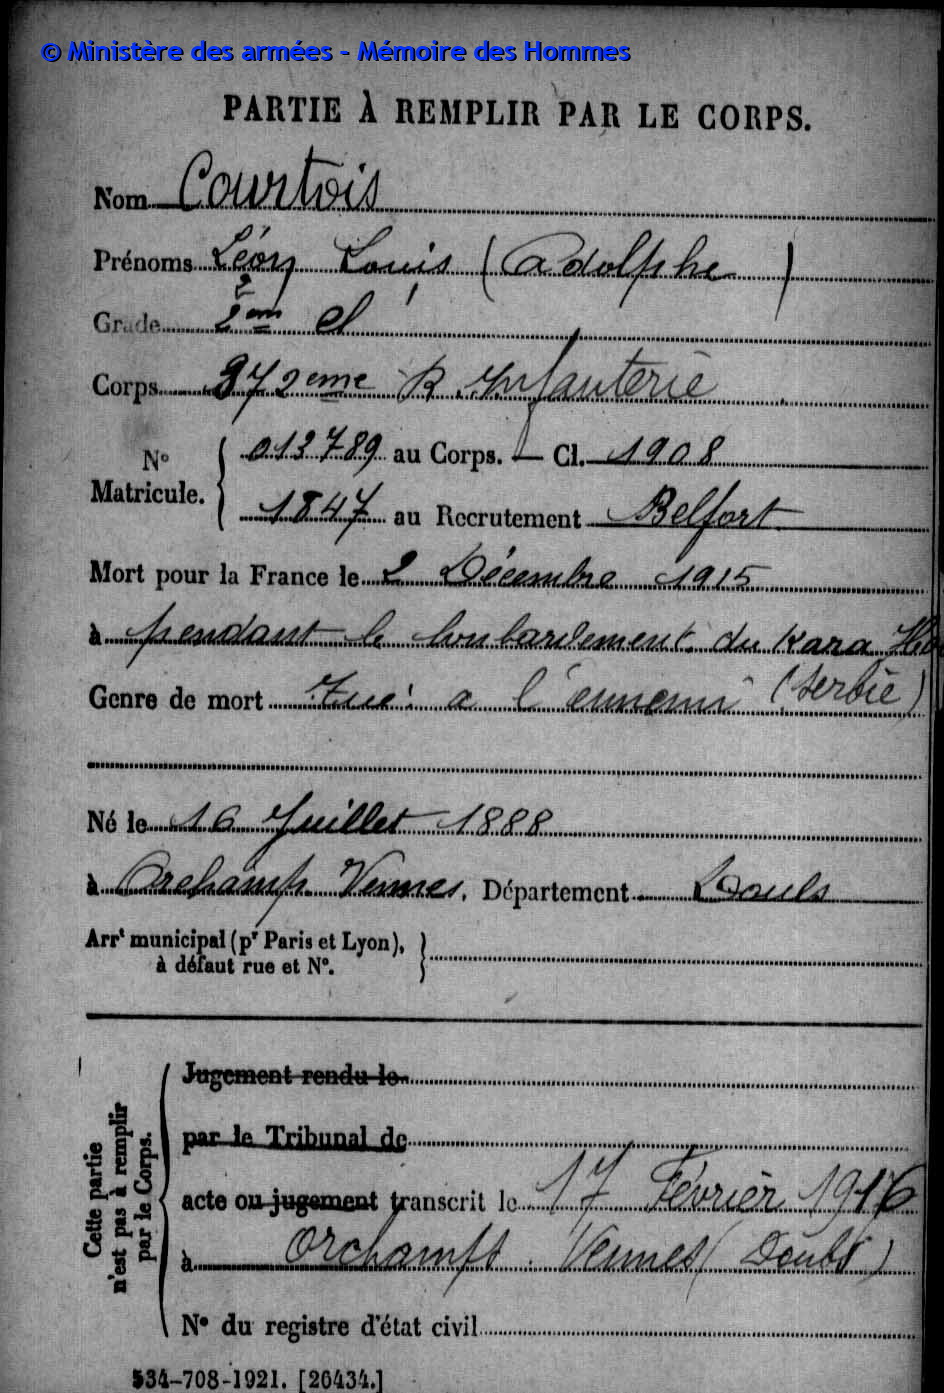 © Ministère des armées - Mémoire des Hommes
PARTIE À REMPLIR PAR LE CORPS.
Nom Courtois
Prénoms Léon Louis (Adolphe)
Grade 2em cl
Corps 372eme R Infanterie
No Matricule. { 013789 au Corps. — Cl. 1908
1847 au Recrutement Belfort
Mort pour la France le 2 Décembre 1915
à pendant le bombardement du Kara
Genre de mort Tué à l'ennemi (Serbie)
Né le 16 Juillet 1888
à Orchamps Vennes, Département Doubs
Arrt municipal (pr Paris et Lyon), }
à défaut rue et No.
Cette partie n'est pas à remplir par le Corps.
Jugement rendu le
par le Tribunal de
acte ou jugement transcrit le 17 Février 1916
à Orchamps Vennes (Doubs)
No du registre d'état civil
534-708-1921. [26434.]